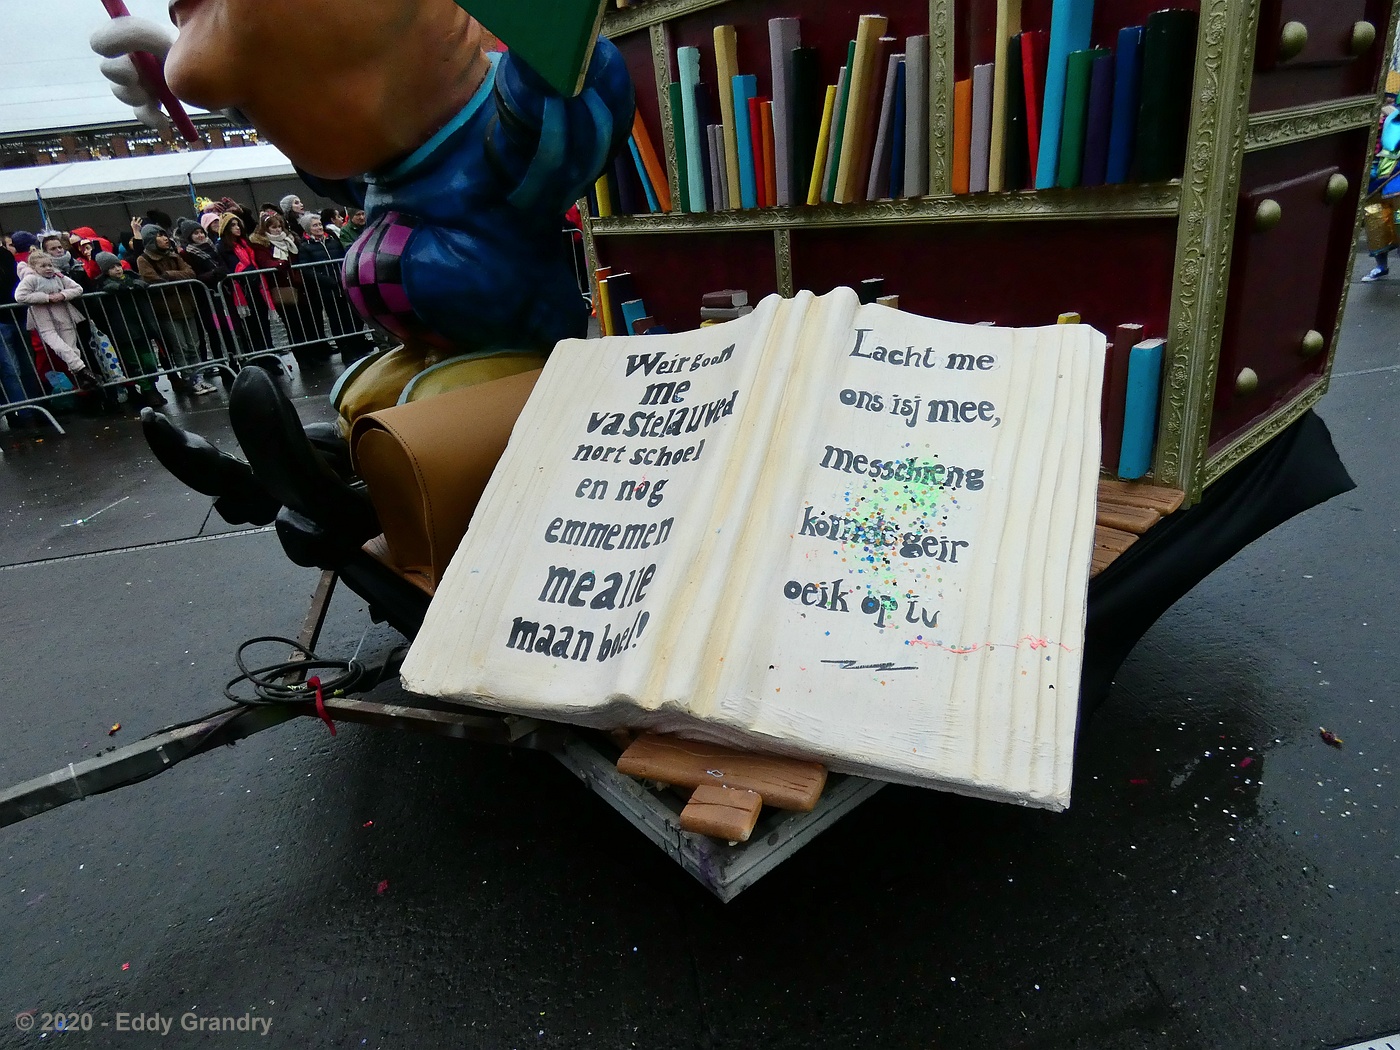 Weir goon
me
vastelauved
nort schoel
en nog
emmemen
me alle
maan boel!
Lacht me
ons isj mee,
messchieng
geir
oeik op iv
© 2020 - Eddy Grandry